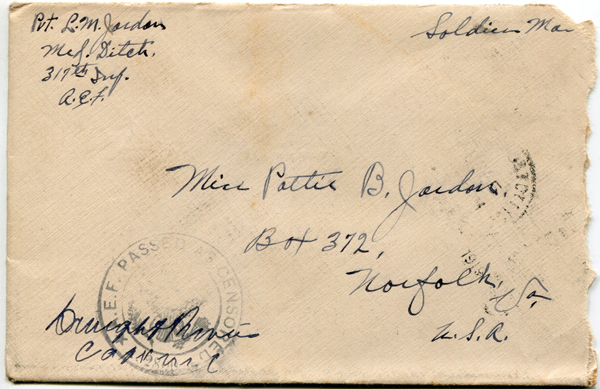 Pvt. L. M. Jordan
Med. Detch.
317th Inf.
A.E.F.
Soldiers Mai
Miss Pattie B. Jordan,
Box 372,
Norfolk, Va.
U.S.A.
A.E.F. PASSED AS CENSORED
Dwight